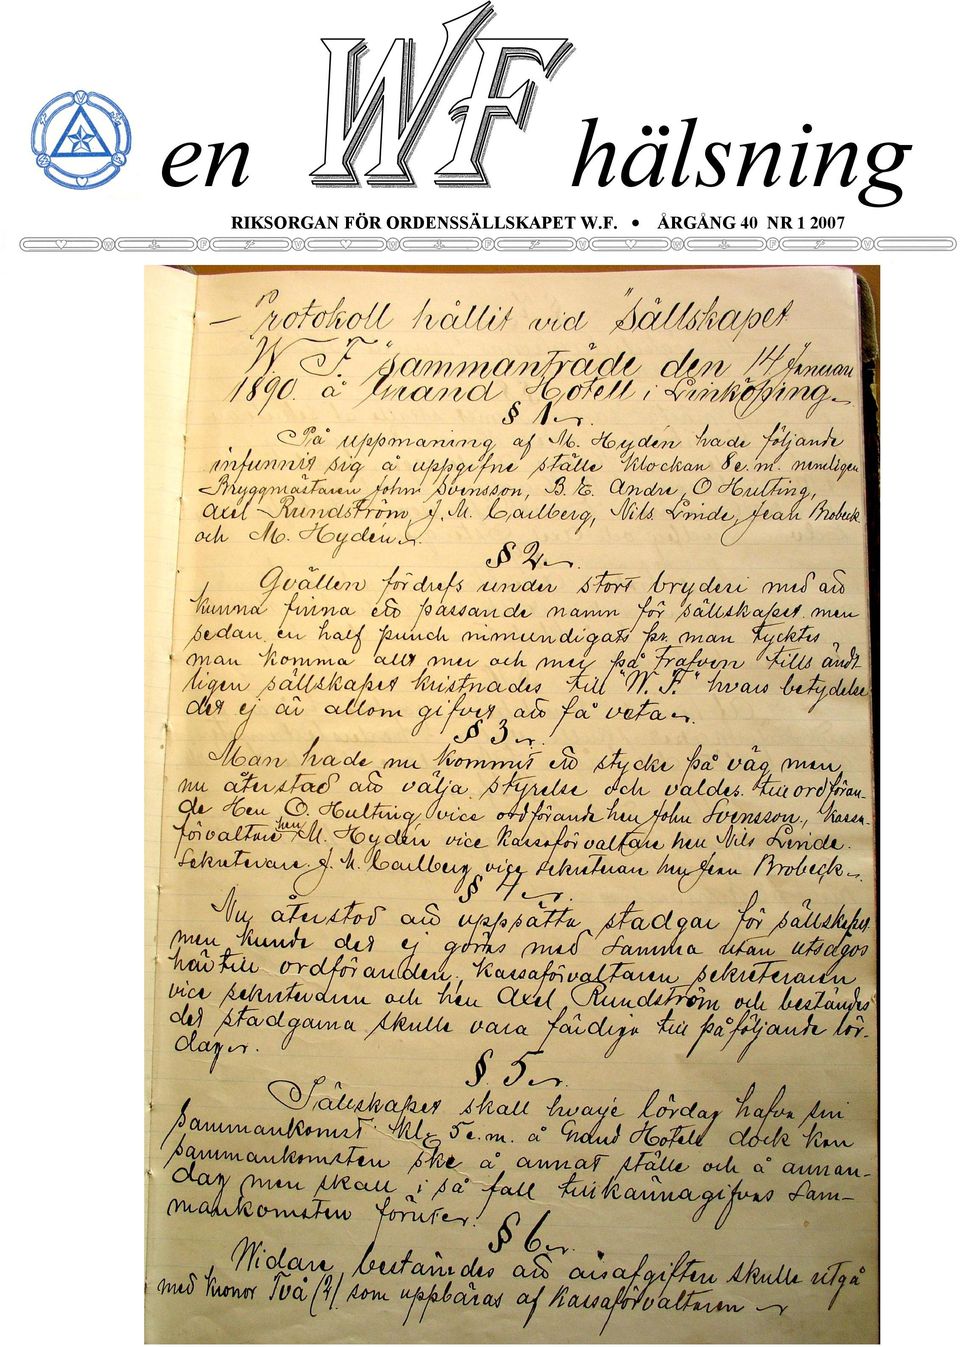 en WF hälsning
RIKSORGAN FÖR ORDENSSÄLLSKAPET W.F. • ÅRGÅNG 40 NR 1 2007
Protokoll hållit vid "Sällskapet
W. F." sammanträde den 14 Januari
1890. å Grand Hotell i Linköping
§ 1
På uppmaning af M. Hydén hade följande
infunnit sig å uppgifne ställe klockan 8 e.m. nemligen
Bryggmästaren John Svensson, B. E. Andre, O Hulting,
Axel Rundström, J. M. Carlberg, Nils Linde, Jean Brobeck
och M. Hydén
§ 2
Qvällen fördrefs under stort bryderi med att
kunna finna ett passande namn för sällskapet men
sedan en half punch nimundigats
man komma allt mer och mer på trafven tills ändt
ligen sällskapet kristnades till "W. F." hvars betydelse
det ej är allom gifvet att få veta
§ 3
Man hade nu kommit ett stycke på väg men
nu återstod att välja styrelse och valdes till ordföran-
de Herr O. Hulting vice ordförande herr John Svensson, kassa-
förvaltare herr M. Hydén vice kassaförvaltare herr Nils Linde
Sekreterare J. M. Carlberg vice sekreterare herr Jean Brobeck
§ 4
Nu återstod att uppsätta stadgar för sällskapet
men kunde det ej göras med samma utan utsågos
härtill ordföranden, kassaförvaltaren sekreteraren
vice sekreteraren och herr Axel Rundström och bestämdes
det stadgarna skulle vara färdiga till påföljande lör-
dag
§ 5
Sällskapet skall hvarje lördag hafva sin
sammankomst kl. 5 e.m. å Grand Hotell dock kan
sammankomsten ske å annat ställe och å annan
dag men skall i så fall tillkännagifvas sam-
mankomsten förut
§ 6
Widare bestämdes att årsafgiften skulle utgå
med kronor Två (2) som uppbäras af kassaförvaltaren